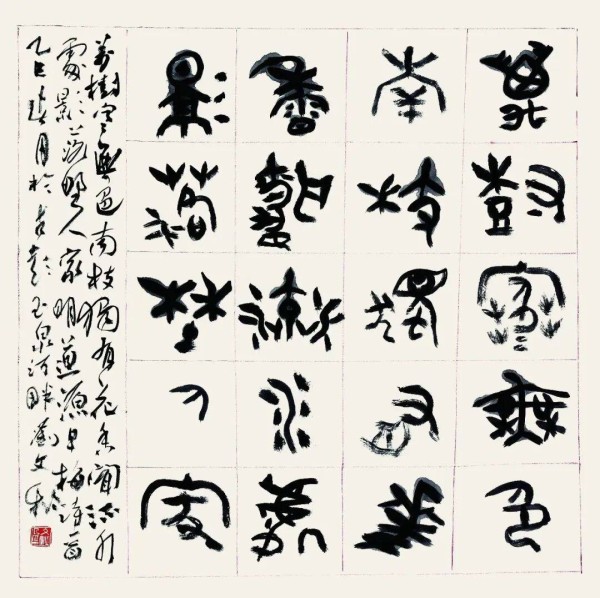 萬樹寒無色
南枝獨有花
香聞流水處
影落野人家
萬樹寒無色南枝獨有花香聞流水
處影落野人家明道源早梅詩一首
乙巳月於古彭玉泉河畔劉文